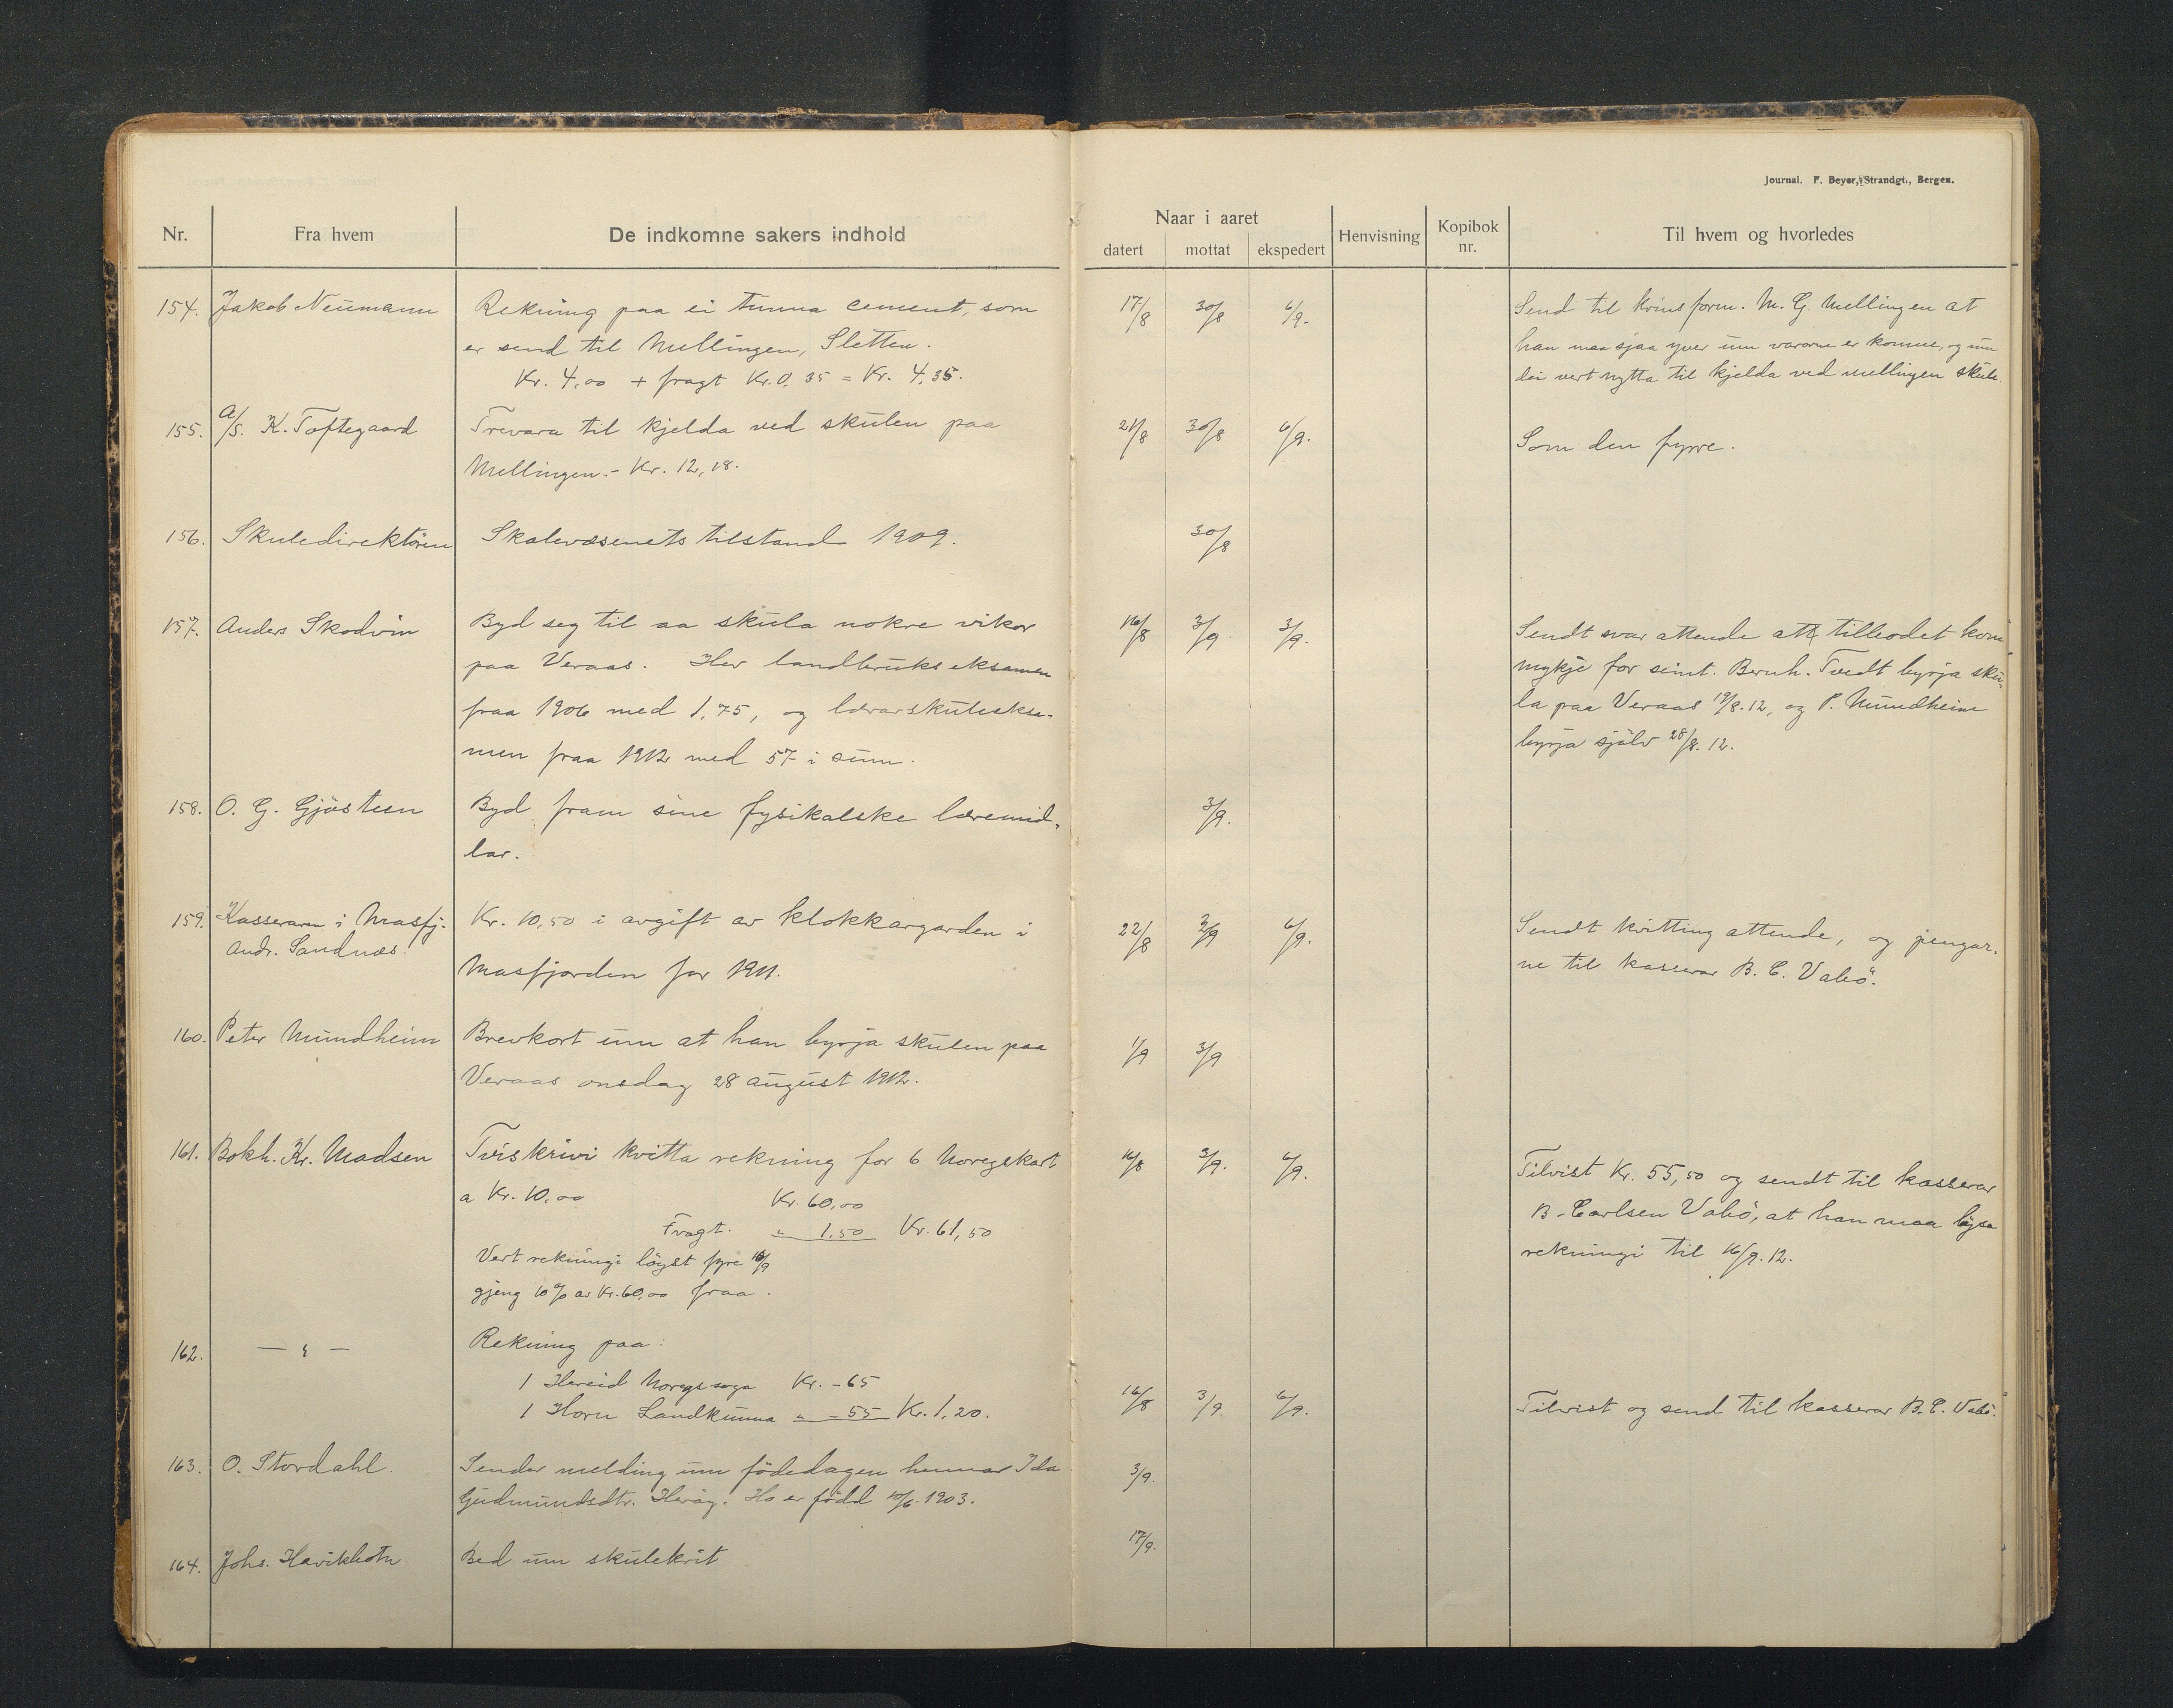 Journal. F. Beyer, Strandgt., Bergen.
Nr. Fra hvem De indkomne sakers indhold Naar i aaret Henvisning Kopibok nr. Til hvem og hvorledes
datert mottat ekspedert
154. Jakob Neumann Rekning paa ei tunna cement, som 17/8 30/8 6/9. Send til krinsform. M. G. Mellingen at
er send til Mellingen, Sletten. han maa sjaa yver um varorne er komne, og um
Kr. 4,00 + fragt Kr. 0,35 = Kr. 4,35. dei vert nytta til kjelda ved Mellingen skule.
155. A/S. K. Toftegaard Trevara til kjelda ved skulen paa 21/8 30/8 6/9. Som den fyrre.
Mellingen. - Kr. 12,18.
156. Skuledirektören Skolevæsenets tilstand 1909. 30/8
157. Anders Skodvin Byd seg til aa skula nokre vikor 16/8 3/9. 3/9. Sendt svar attende att tilbodet kom
paa Veraas. Hev landbrukseksamen mykje for seint. Bernh. Tvedt byrja sku-
fraa 1906 med 1,75, og lærarskuleeksa- la paa Veraas 19/8.12, og P. Mundheim
men fraa 1912 med 57 i sum. byrja själv 28/8.12.
158. O. G. Gjösteen Byd fram sine fysikalske læremid- 3/9.
lar.
159. Kasseraren i Masfj. Kr. 10,50 i avgift av klokkargarden i 22/8 3/9 6/9. Sendt kvitting attende, og pengar-
Andr. Sandnæs. Masfjorden for 1911. ne til kasserar B. C. Vabö.
160. Peter Mundheim Brevkort um at han byrja skulen paa 1/9 3/9
Veraas onsdag 28 august 1912.
161. Bokh. Kr. Madsen Tviskrivi kvitta rekning for 6 Noregskart 16/8 3/9. 6/9. Tilvist Kr. 55,50 og sendt til kasserar
a Kr. 10,00 Kr. 60,00 B. Carlsen Vabö, at han maa löysa
Fragt. " 1.50 Kr. 61,50 rekningi til 16/9.12.
Vert rekningi löyst fyre 16/9
gjeng 10% av Kr. 60,00 fraa.
162. — " — Rekning paa:
1 Hereid Noregssoga Kr. -65
1 Horn Landkunna " -55 Kr. 1,20. 16/8 3/9. 6/9. Tilvist og send til kasserar B. C. Vabö.
163. O. Stordahl. Sender melding um födedagen hennar Ida 3/9.
Gudmundsdtr. Heröy. Ho er född 10/6.1903.
164. Johs. Havikbotn Bed um skulekrit 17/9.